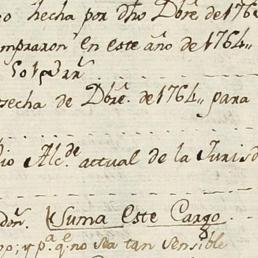 hecha por dho Dbrê. de 176
mpraron en este año de 1764„
secha de Dbrê. de 1764„ para
io Alc.de actual de la Juris
don. Suma Este Cargo
po; y p.a q.e no sea tan sensible